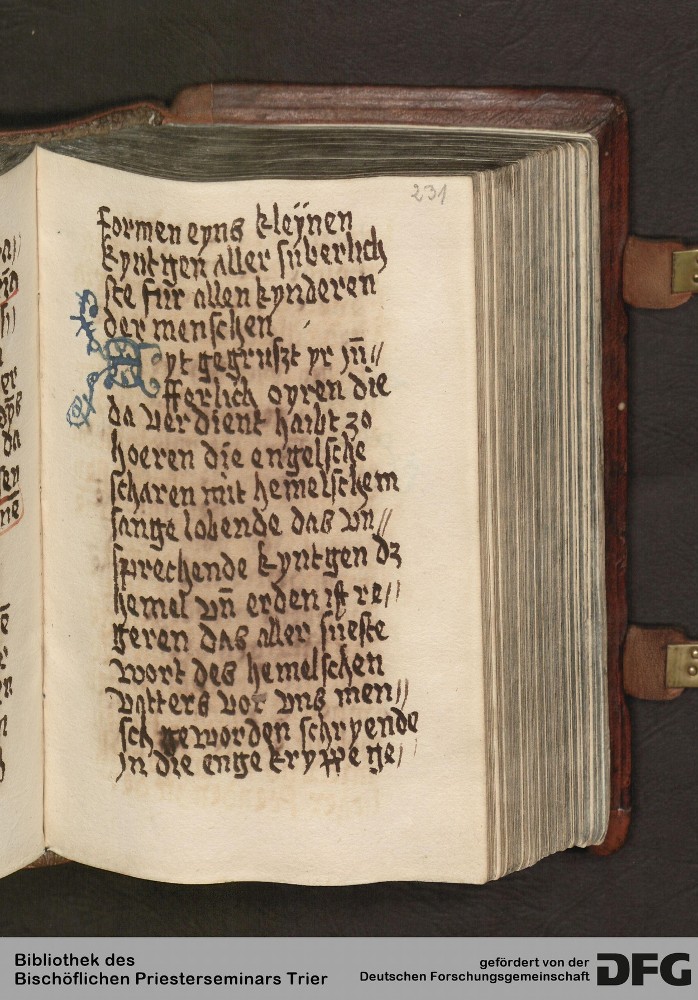 231
formen eyns kleÿnen
kyntgen aller suberlich
ste fur allen kynderen
der menschen
Syt gegruszt yr jū//
fferlich oyren die
da verdient haibt zo
hoeren die engelsche
scharen mit hemelschem
sange lobende das vn//
sprechende kyntgen dz
hemel vn̄ erden ist re//
geren das aller sueste
wort des hemelschen
vatters vor vns men//
sch geworden schryende
jn die enge kryppe ge//
Bibliothek des
Bischöflichen Priesterseminars Trier
gefördert von der
Deutschen Forschungsgemeinschaft
DFG